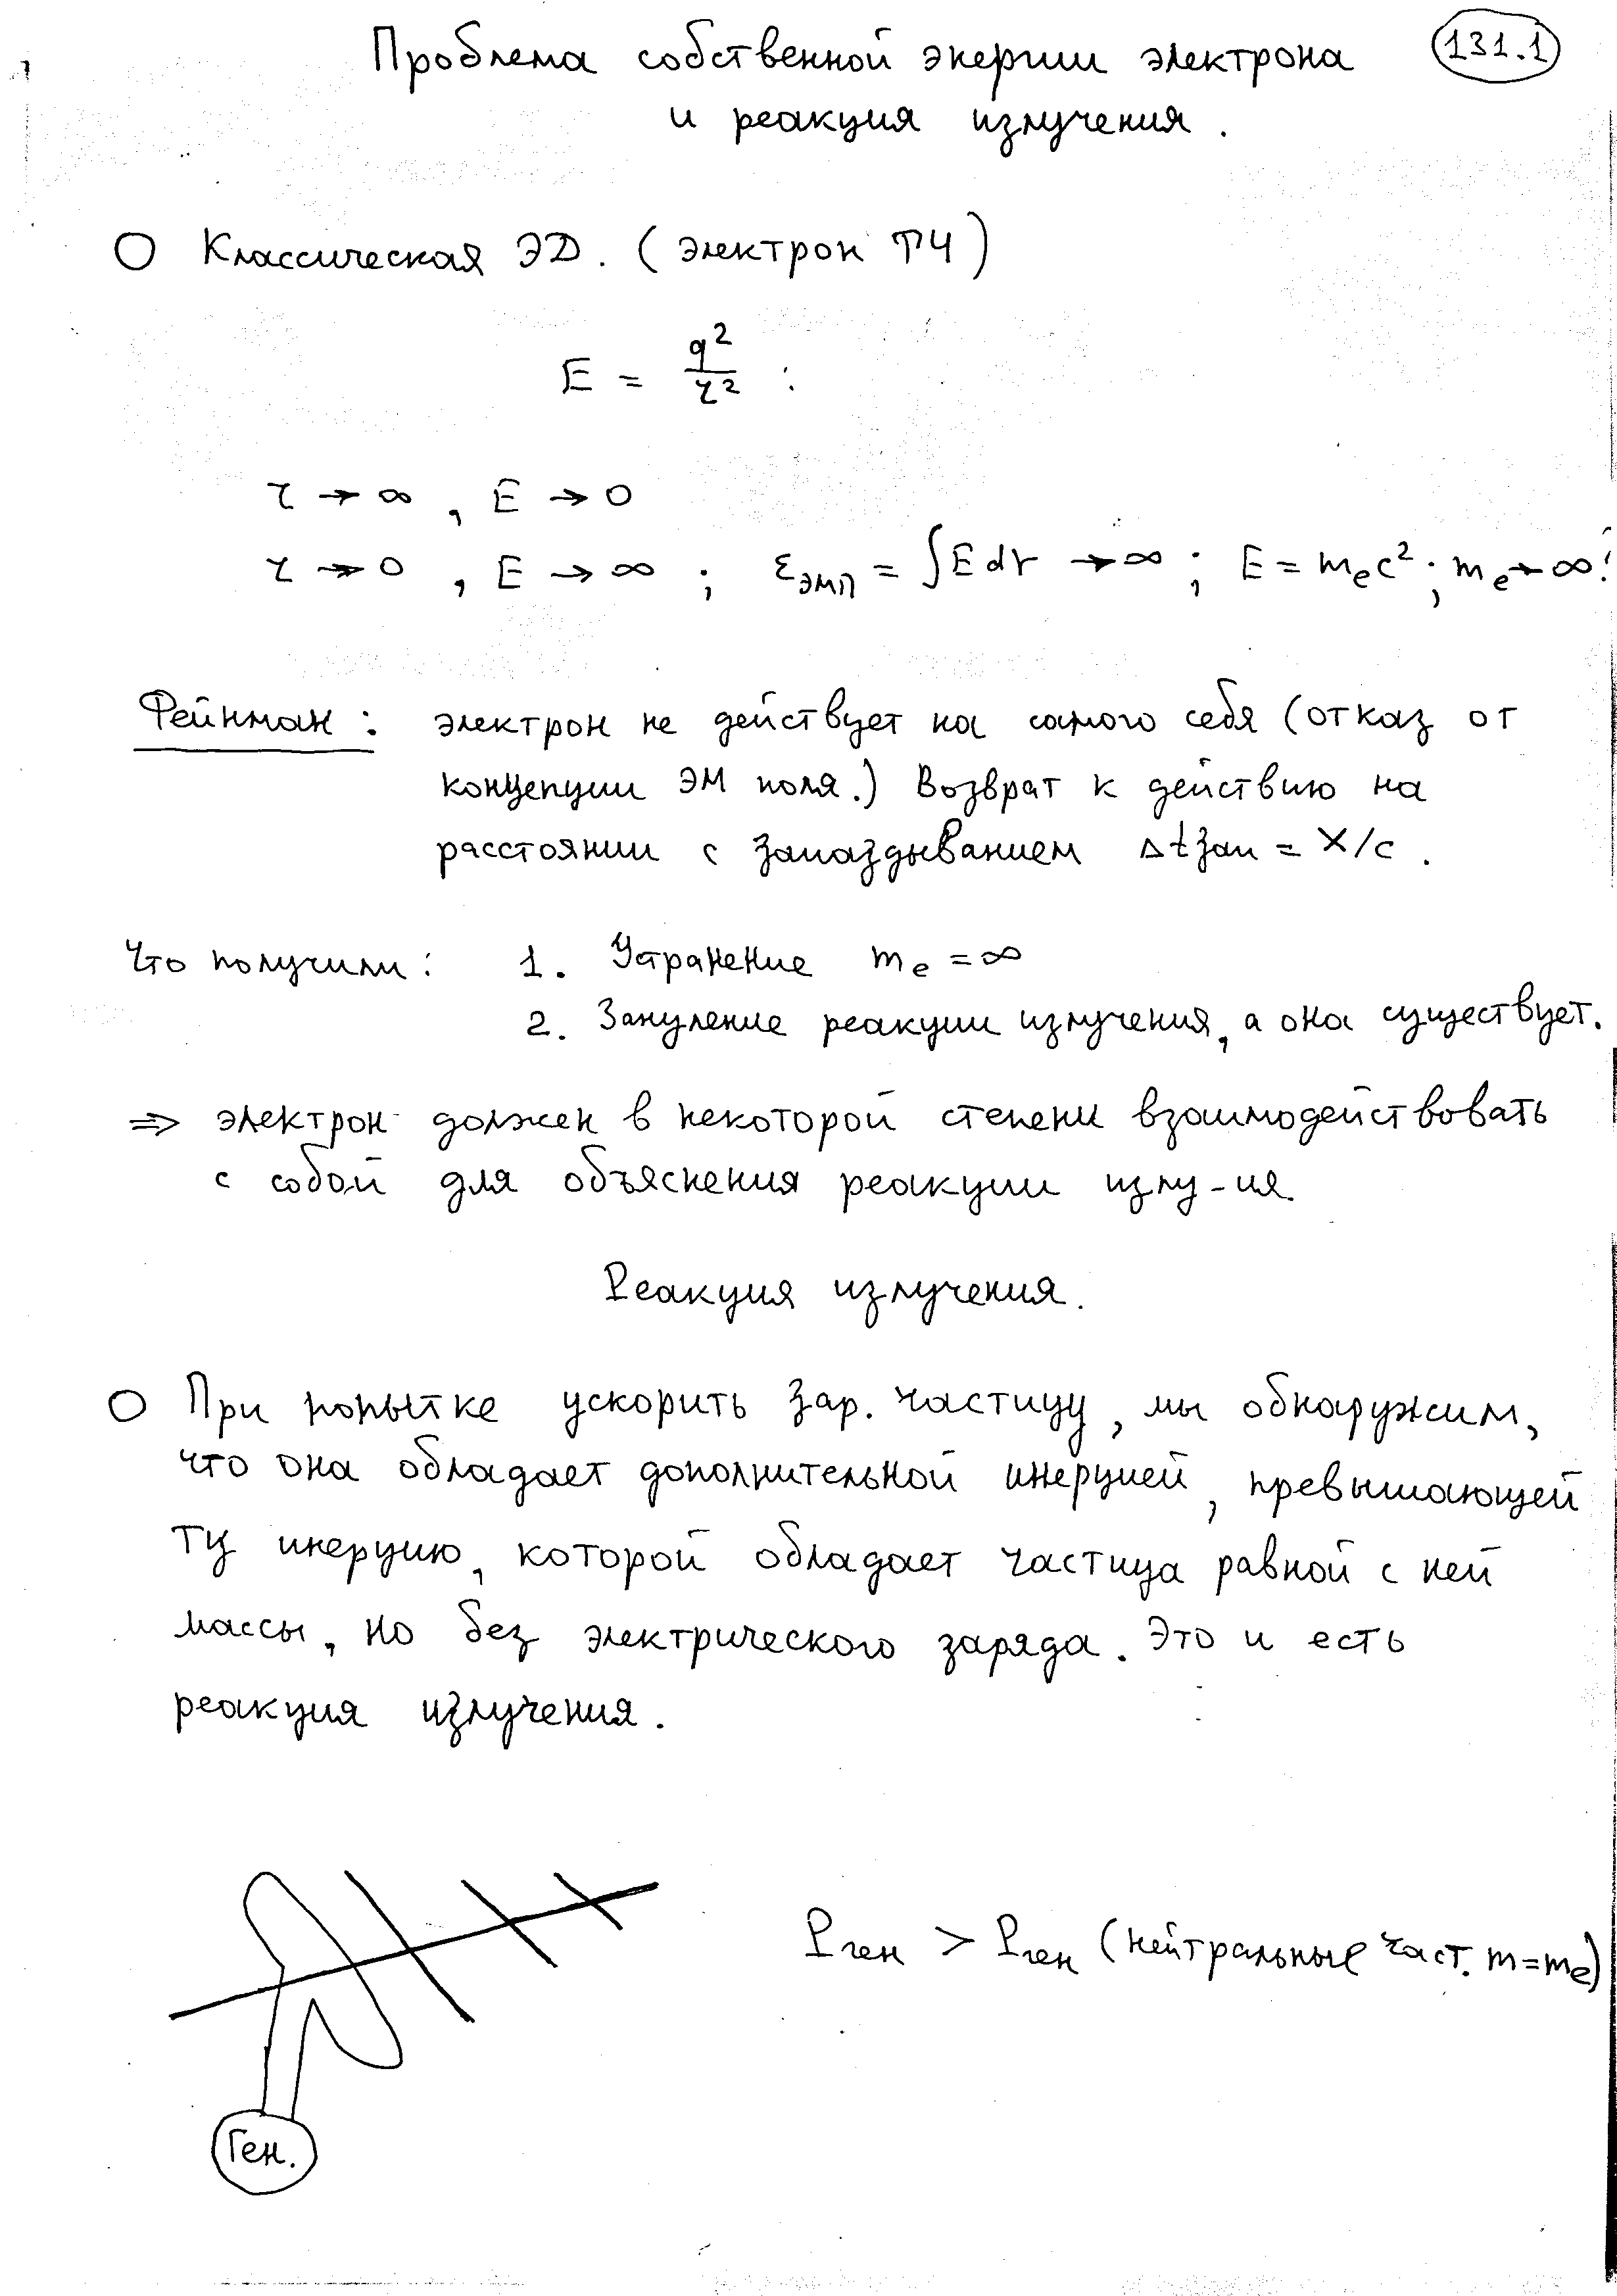 Проблема собственной энергии электрона 131.1
и реакция излучения.
Классическая ЭД. (электрон ТЧ)
E = q²/r² :
r → ∞ , E → 0
r → 0 , E → ∞ ; ε_ЭМП = ∫E dr → ∞ ; E = mₑc² ; mₑ → ∞!
Фейнман: электрон не действует на самого себя (отказ от
концепции ЭМ поля.) Возврат к действию на
расстоянии с запаздыванием Δt зап = X/c .
Что получили: 1. Устранение mₑ = ∞
2. Зануление реакции излучения, а она существует.
⇒ электрон должен в некоторой степени взаимодействовать
с собой для объяснения реакции излу-ия.
Реакция излучения.
При попытке ускорить зар. частицу, мы обнаружим,
что она обладает дополнительной инерцией, превышающей
ту инерцию, которой обладает частица равной с ней
массы, но без электрического заряда. Это и есть
реакция излучения.
Pген > Pген (нейтральные част. m=mₑ)
Ген.